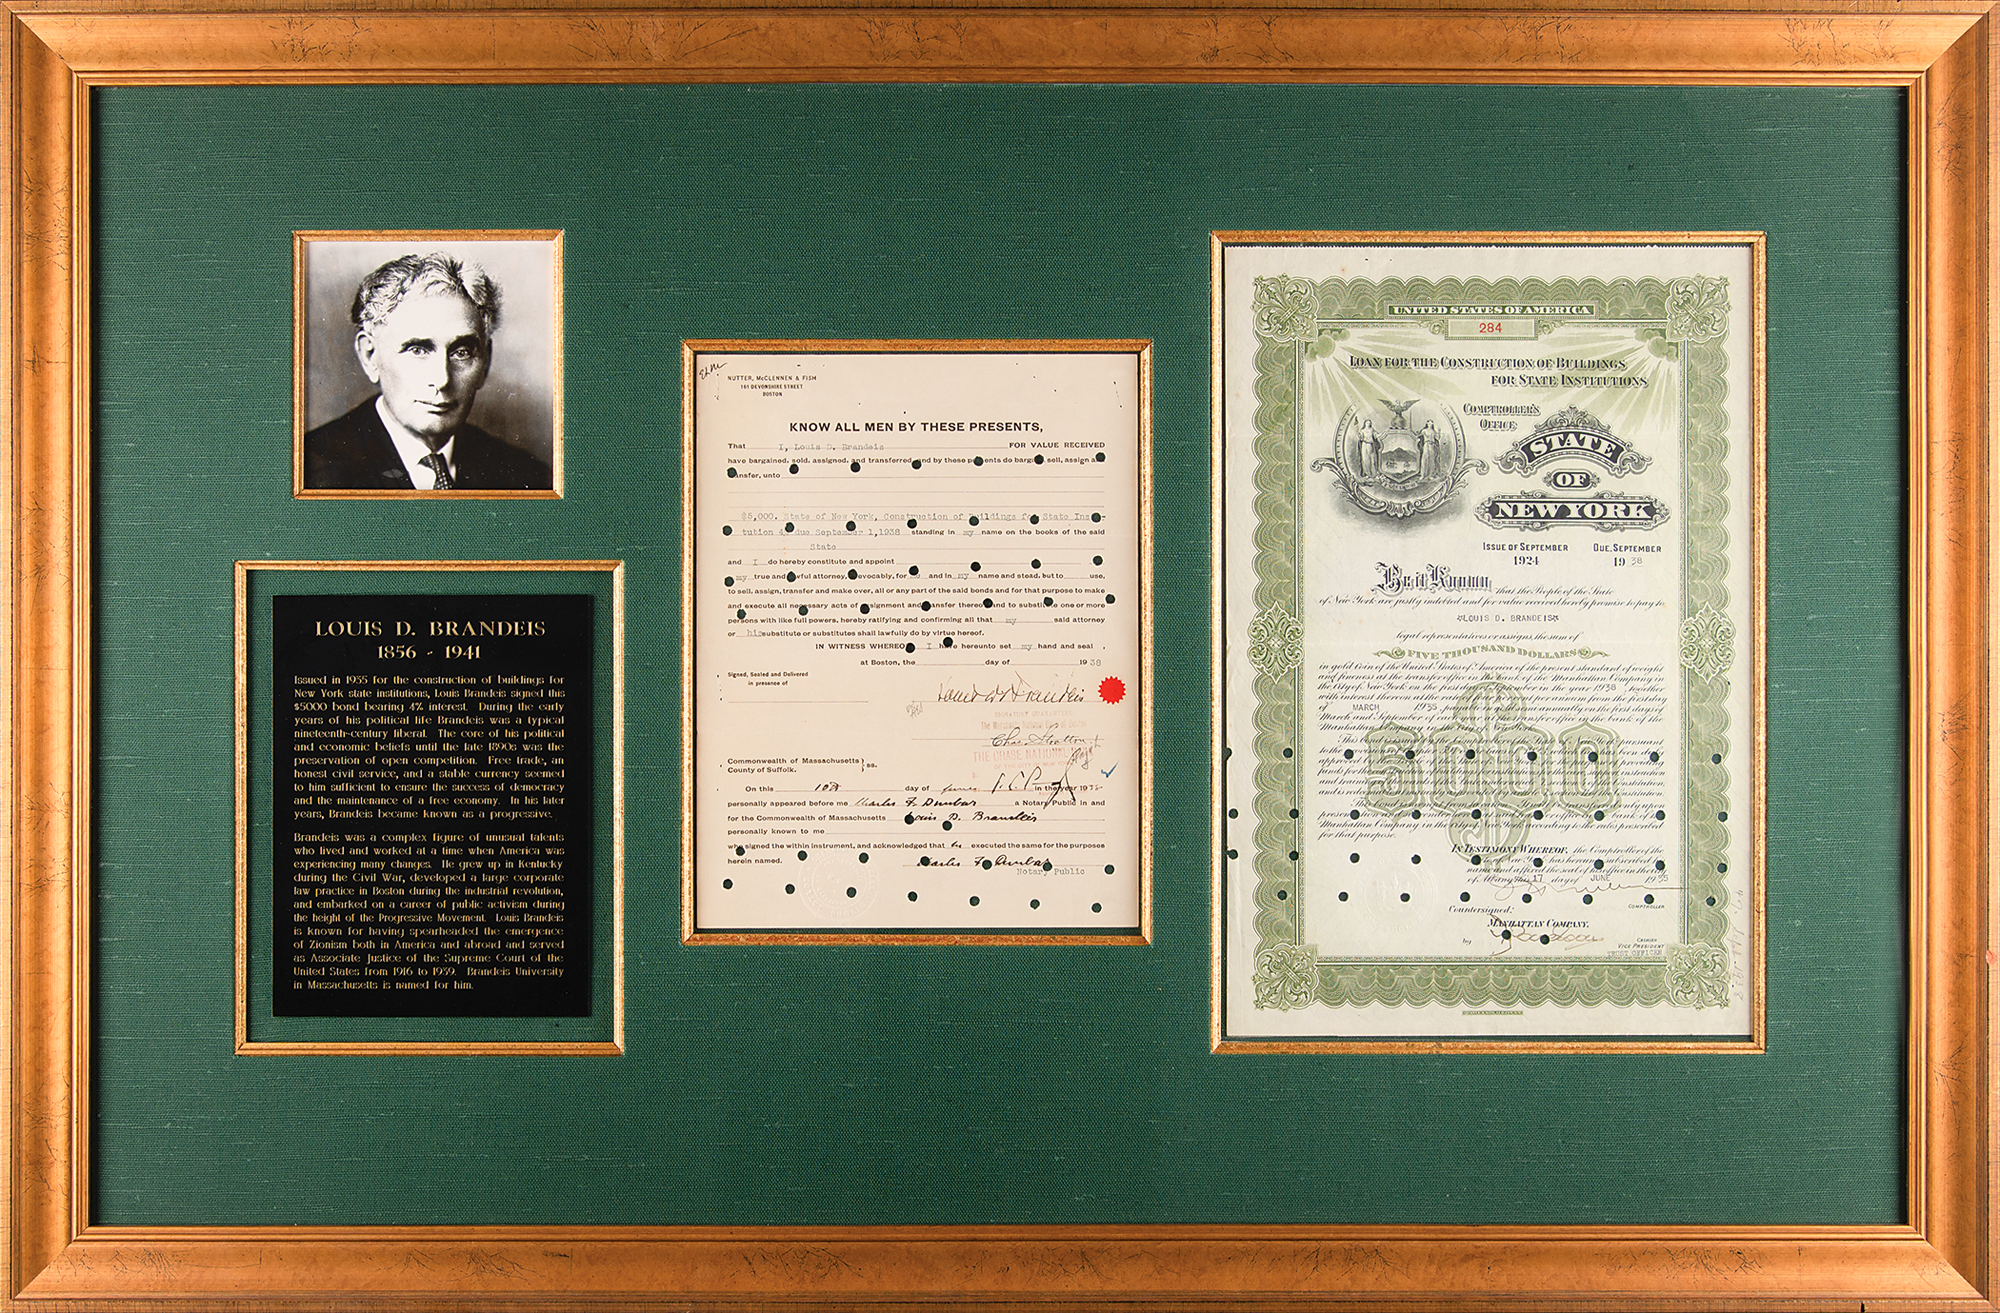 LOUIS D. BRANDEIS
1856 - 1941
Issued in 1935 for the construction of buildings for
New York state institutions, Louis Brandeis signed this
$5000 bond bearing 4% interest. During the early
years of his political life Brandeis was a typical
nineteenth-century liberal. The core of his political
and economic beliefs until the late 1890s was the
preservation of open competition. Free trade, an
honest civil service, and a stable currency seemed
to him sufficient to ensure the success of democracy
and the maintenance of a free economy. In his later
years, Brandeis became known as a progressive.
Brandeis was a complex figure of unusual talents
who lived and worked at a time when America was
experiencing many changes. He grew up in Kentucky
during the Civil War, developed a large corporate
law practice in Boston during the industrial revolution,
and embarked on a career of public activism during
the height of the Progressive Movement. Louis Brandeis
is known for having spearheaded the emergence
of Zionism both in America and abroad and served
as Associate Justice of the Supreme Court of the
United States from 1916 to 1939. Brandeis University
in Massachusetts is named for him.
NUTTER, McCLENNEN & FISH
161 DEVONSHIRE STREET
BOSTON
KNOW ALL MEN BY THESE PRESENTS,
That I, Louis D. Brandeis FOR VALUE RECEIVED
have bargained, sold, assigned, and transferred, and by these presents do bargain, sell, assign and
transfer, unto
$5,000. State of New York, Construction of Buildings for State Insti-
tution 4, due September 1, 1938 standing in my name on the books of the said
State
and I do hereby constitute and appoint
my true and lawful attorney, irrevocably, for me and in my name and stead, but to use,
to sell, assign, transfer and make over, all or any part of the said bonds and for that purpose to make
and execute all necessary acts of assignment and transfer thereof and to substitute one or more
persons with like full powers, hereby ratifying and confirming all that my said attorney
or his substitute or substitutes shall lawfully do by virtue hereof.
IN WITNESS WHEREOF, I have hereunto set my hand and seal,
at Boston, the day of 1938
Signed, Sealed and Delivered
in presence of
Louis D. Brandeis
SIGNATURE GUARANTEED
Chas. Stratton
THE CHASE NATIONAL
Commonwealth of Massachusetts } ss.
County of Suffolk.
On this 10th day of June in the year 193
personally appeared before me Charles F. Dunbar a Notary Public in and
for the Commonwealth of Massachusetts Louis D. Brandeis
personally known to me
who signed the within instrument, and acknowledged that he executed the same for the purposes
herein named. Charles F. Dunbar
Notary Public
UNITED STATES OF AMERICA
284
LOAN FOR THE CONSTRUCTION OF BUILDINGS
FOR STATE INSTITUTIONS
COMPTROLLER'S
OFFICE
STATE
OF
NEW YORK
ISSUE OF SEPTEMBER DUE, SEPTEMBER
1924 1938
Be it Known that the People of the State
of New York are justly indebted and for value received hereby promise to pay to
*LOUIS D. BRANDEIS*
legal representatives or assigns, the sum of
FIVE THOUSAND DOLLARS
in gold coin of the United States of America of the present standard of weight
and fineness at the transfer office in the bank of the Manhattan Company in
the City of New York on the first day of September in the year 1938 together
with interest thereon at the rate of four per centum per annum from the first day
of MARCH 1935 payable semi annually on the first days of
March and September of each year at the transfer office in the bank of the
Manhattan Company in the city of New York.
This bond is exempt from taxation. It may be transferred only upon
Manhattan Company in the city of New York according to the rules prescribed
for that purpose.
IN TESTIMONY WHEREOF, the Comptroller of the
State of New York has hereunto subscribed his
name and affixed the seal of his office in the city
of Albany this 17 day of JUNE 1935
COMPTROLLER
Countersigned:
MANHATTAN COMPANY,
by
CASHIER
VICE PRESIDENT
TRUST OFFICER